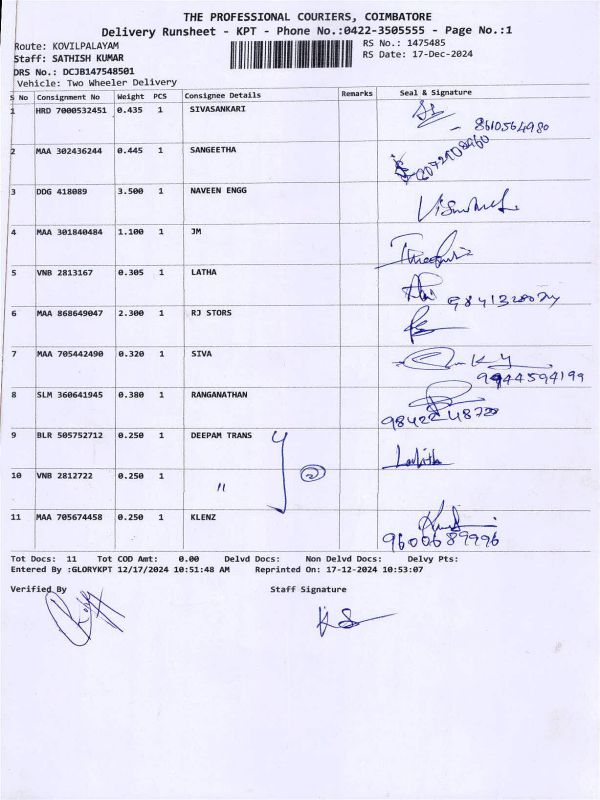 THE PROFESSIONAL COURIERS, COIMBATORE
Delivery Runsheet - KPT - Phone No.:0422-3505555 - Page No.:1
Route: KOVILPALAYAM RS No.: 1475485
Staff: SATHISH KUMAR RS Date: 17-Dec-2024
DRS No.: DCJB147548501
Vehicle: Two Wheeler Delivery
S No Consignment No Weight PCS Consignee Details Remarks Seal & Signature
1 HRD 7000532451 0.435 1 SIVASANKARI
- 8610564980
2 MAA 302436244 0.445 1 SANGEETHA
3 DDG 418089 3.500 1 NAVEEN ENGG
4 MAA 301840484 1.100 1 JM
5 VNB 2813167 0.305 1 LATHA
6 MAA 868649047 2.300 1 RJ STORS
7 MAA 705442490 0.320 1 SIVA
9944594199
8 SLM 360641945 0.380 1 RANGANATHAN
9 BLR 505752712 0.250 1 DEEPAM TRANS
10 VNB 2812722 0.250 1 "
2
11 MAA 705674458 0.250 1 KLENZ
9600689996
Tot Docs: 11 Tot COD Amt: 0.00 Delvd Docs: Non Delvd Docs: Delvy Pts:
Entered By :GLORYKPT 12/17/2024 10:51:48 AM Reprinted On: 17-12-2024 10:53:07
Verified By Staff Signature